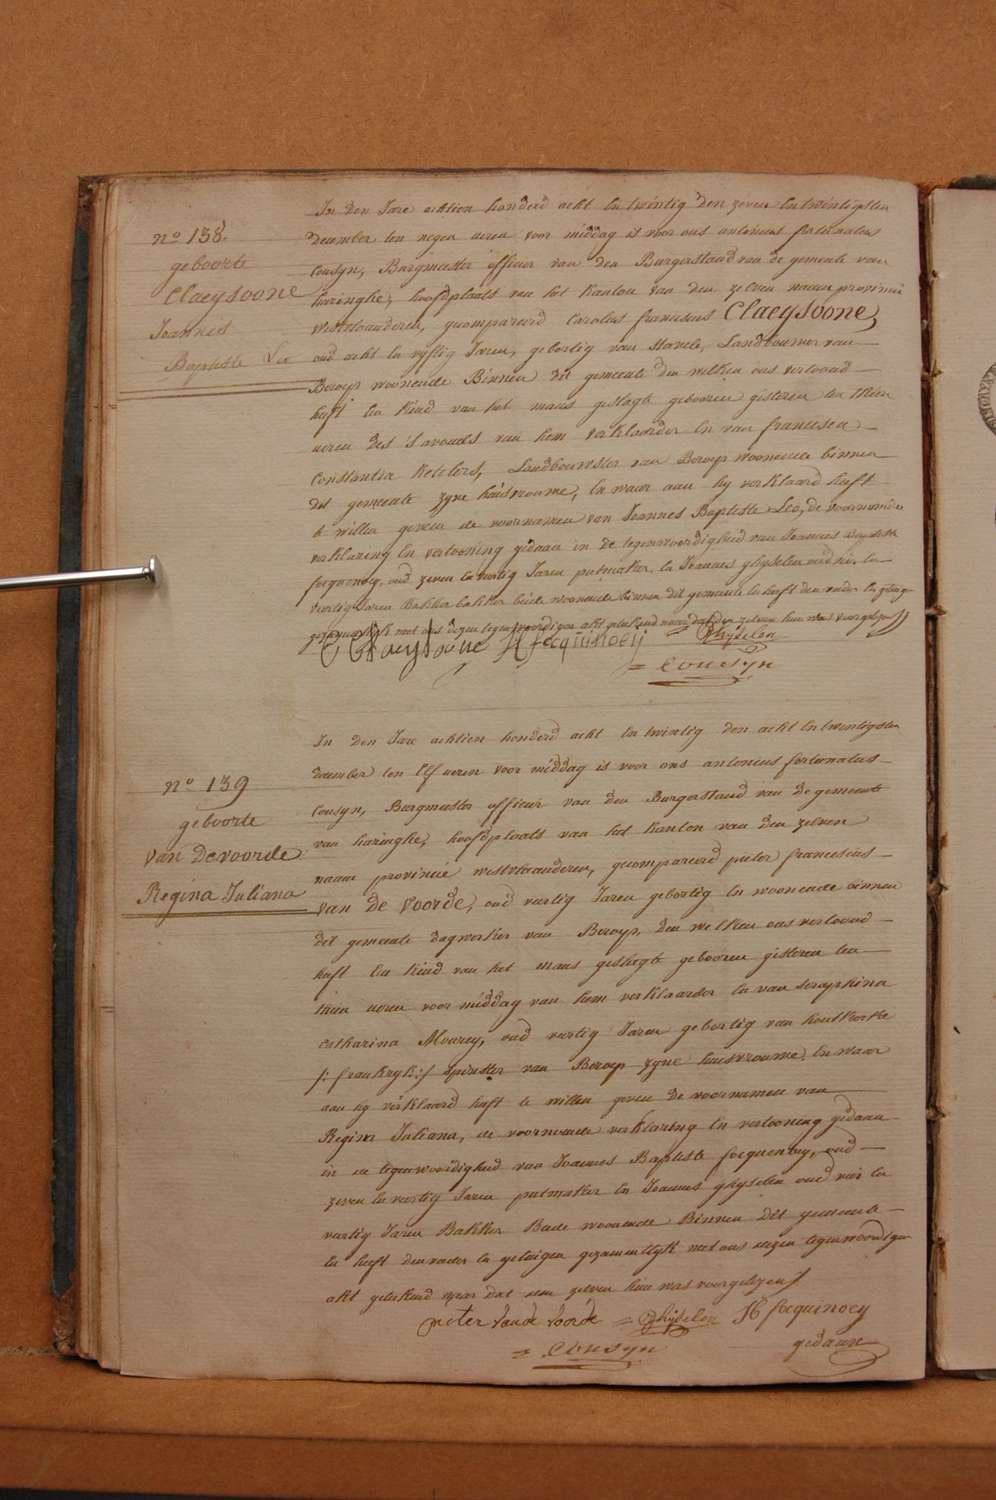 n° 138.
geboorte
Claeysoone
Joannes
Baptiste Leo
In den Jare achtien honderd acht En twintig den zeven Entwintigsten
december ten negen uren voor middag is voor ons antonius fortunatus
Cousyn, Burgmeester officier van den Burgerstand van de gemeente van
haringhe, hoofdplaats van het kanton van den zelven naam provincie
Westvlaanderen, gecompareerd Carolus franciscus Claeysoone,
oud acht En vyftig Jaren, geboortig van Stavele, Landbouwer van
Beroep woonende Binnen dit gemeente den welken ons vertoond
heeft Een kind van het mans geslagte gebooren gisteren ten
uren des 's avonds van hem verklaarder En van francisca
Constantia Keters, Landbouwster van Beroep woonende binnen
dit gemeente zyne huisvrouwe, En waar aan hy verklaard heeft
te willen geven de voornamen van Joannes Baptiste Leo, de voornoemde
verklaring En vertooning gedaan in de tegenwoordigheid van Joannes Baptiste
focquenoey, oud zeven En veertig Jaren putmaker En Joannes ghyselen oud
veertig Jaren Bakker beide woonende binnen dit gemeente En heeft den vader En getuigen
gezamentlyk met ons dezen tegenwoordigen akt geteekend naer dat den zelven hun was voorgelezen
C F Claeysoone JB focquinoey Ghyselen
= Cousyn
n° 139
geboorte
Van Devoorde
Regina Juliana
In den Jare achtien honderd acht En twintig den acht En twintigsten
december ten Elf uren voor middag is voor ons antonius fortunatus
Cousyn, Burgmeester officier van den Burgerstand van de gemeente
van haringhe, hoofdplaats van het kanton van den zelven
naam provincie westvlaanderen, gecompareerd pieter franciscus
Van De Voorde, oud veertig Jaren geboortig En woonende binnen
dit gemeente dagwerker van Beroep, den welken ons vertoond
heeft Een kind van het mans geslagte gebooren gisteren ten
thien uren voor middag van hem verklaarder En van seraphina
Catharina Mourey, oud veertig Jaren geboortig van houtkerke
/: frankryk :/ spinster van Beroep zyne huisvrouwe, En waar
aan hy verklaard heeft te willen geven de voornamen van
Regina Juliana, de voornoemde verklaring En vertooning gedaan
in de tegenwoordigheid van Joannes Baptiste focquenoey, oud
zeven En veertig Jaren putmaker En Joannes ghyselen oud vier En
veertig Jaren Bakker Beide woonende Binnen dit gemeente
En heeft den vader En getuigen gezamentlyk met ons dezen tegenwoordigen
akt geteekend naer dat den zelven hun was voorgelezen
pieter Vande Voorde = Ghyselen JB focquinoey
= Cousyn gedaan